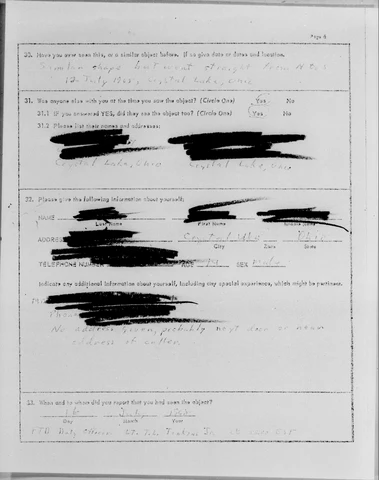 Page 8
30. Have you ever seen this, or a similar object before. If so give date or dates and location.
Similar shape but went straight from N to S
12 July 1965, Crystal Lake, Ohio
31. Was anyone else with you at the time you saw the object? (Circle One) Yes No
31.1 IF you answered YES, did they see the object too? (Circle One) Yes No
31.2 Please list their names and addresses:
Crystal Lake, Ohio Crystal Lake, Ohio
32. Please give the following information about yourself:
NAME
Last Name First Name Middle Name
ADDRESS Crystal Lake Ohio
City Zone State
TELEPHONE NUMBER AGE SEX Male
Indicate any additional information about yourself, including any special experience, which might be pertinent.
No address given, probably next door or near
address of caller
33. When and to whom did you report that you had seen the object?
July
Day Month Year
FTD Duty Officer